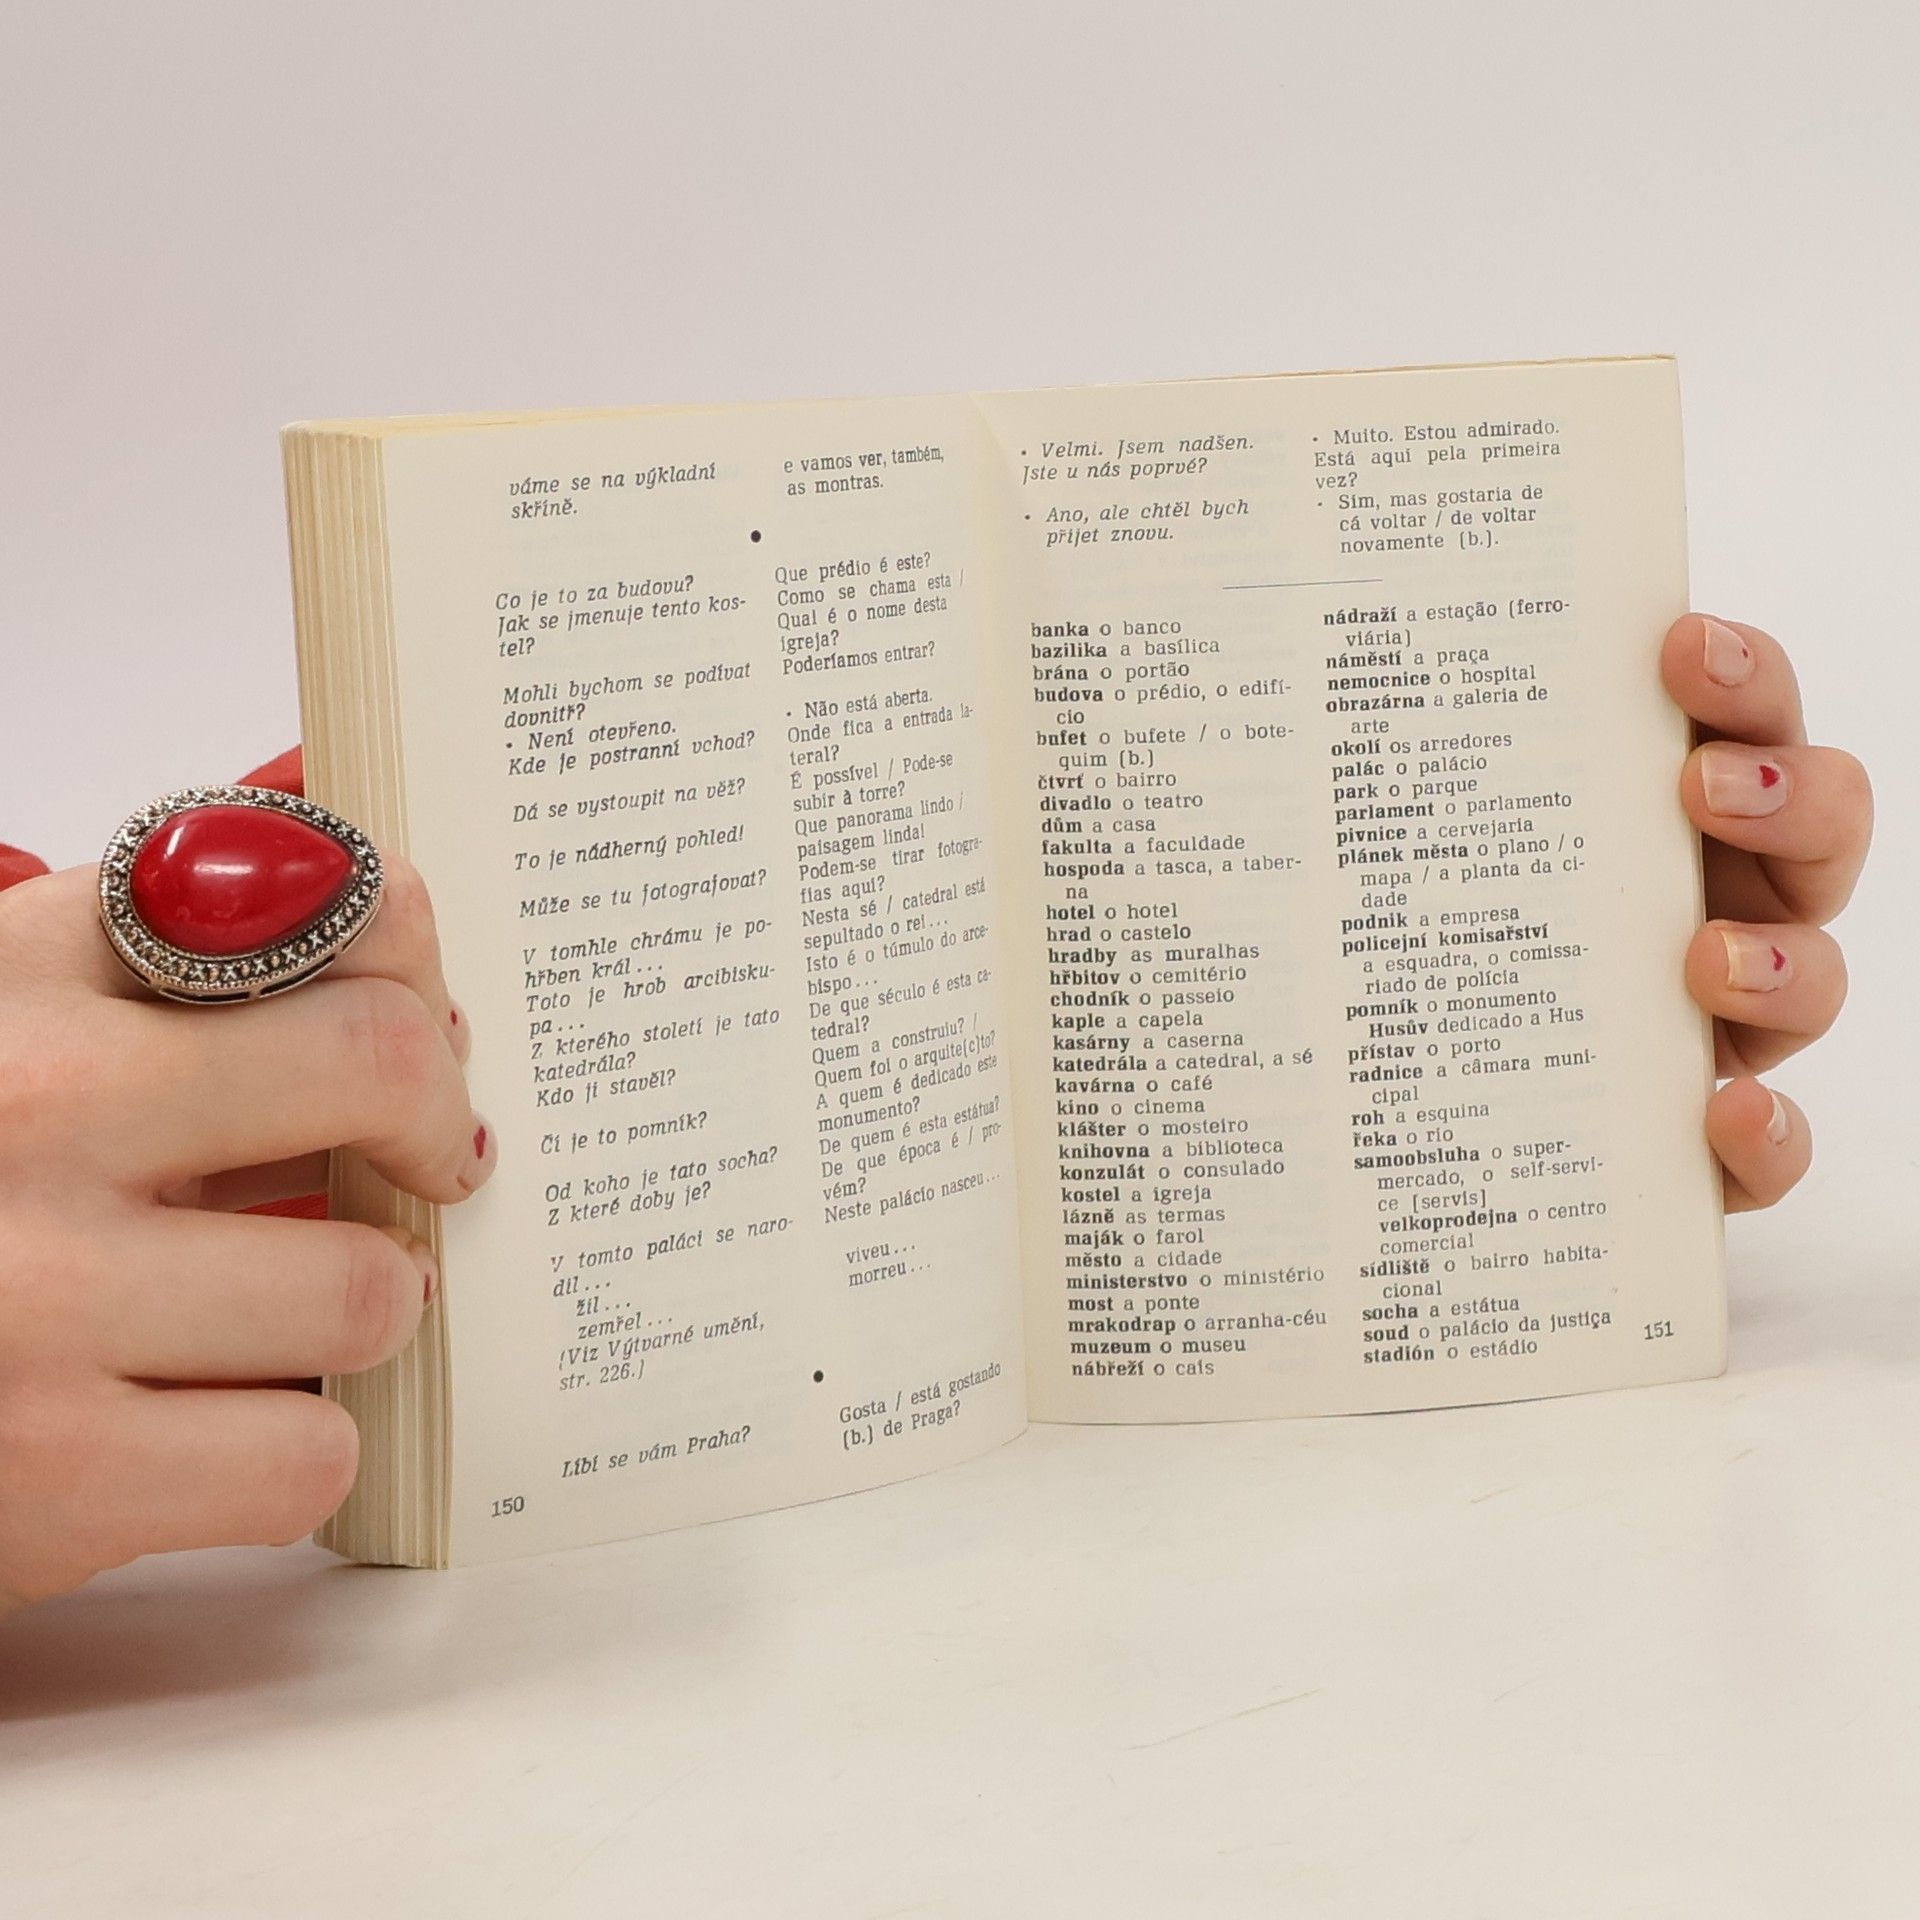 váme se na výkladní
skříně.
Co je to za budovu?
Jak se jmenuje tento kos-
tel?
Mohli bychom se podívat
dovnitř?
• Není otevřeno.
Kde je postranní vchod?
Dá se vystoupit na věž?
To je nádherný pohled!
Může se tu fotografovat?
V tomhle chrámu je po-
hřben král...
Toto je hrob arcibisku-
pa...
Z kterého století je tato
katedrála?
Kdo ji stavěl?
Čí je to pomník?
Od koho je tato socha?
Z které doby je?
V tomto paláci se naro-
dil...
žil...
zemřel...
(Viz Výtvarné umění,
str. 226.)
Líbí se vám Praha?
150
e vamos ver, também,
as montras.
Que prédio é este?
Como se chama esta /
Qual é o nome desta
igreja?
Poderíamos entrar?
• Não está aberta.
Onde fica a entrada la-
teral?
É possível / Pode-se
subir à torre?
Que panorama lindo /
paisagem linda!
Podem-se tirar fotogra-
fias aqui?
Nesta sé / catedral está
sepultado o rei...
Isto é o túmulo do arce-
bispo...
De que século é esta ca-
tedral?
Quem a construiu? /
Quem foi o arquite(c)to?
A quem é dedicado este
monumento?
De quem é esta estátua?
De que época é / pro-
vém?
Neste palácio nasceu...
viveu...
morreu...
Gosta / está gostando
(b.) de Praga?
• Velmi. Jsem nadšen.
Jste u nás poprvé?
• Ano, ale chtěl bych
přijet znovu.
• Muito. Estou admirado.
Está aqui pela primeira
vez?
• Sim, mas gostaria de
cá voltar / de voltar
novamente (b.).
banka o banco
bazilika a basílica
brána o portão
budova o prédio, o edifí-
cio
bufet o bufete / o bote-
quim (b.)
čtvrť o bairro
divadlo o teatro
dům a casa
fakulta a faculdade
hospoda a tasca, a taber-
na
hotel o hotel
hrad o castelo
hradby as muralhas
hřbitov o cemitério
chodník o passeio
kaple a capela
kasárny a caserna
katedrála a catedral, a sé
kavárna o café
kino o cinema
klášter o mosteiro
knihovna a biblioteca
konzulát o consulado
kostel a igreja
lázně as termas
maják o farol
město a cidade
ministerstvo o ministério
most a ponte
mrakodrap o arranha-céu
muzeum o museu
nábřeží o cais
nádraží a estação (ferro-
viária)
náměstí a praça
nemocnice o hospital
obrazárna a galeria de
arte
okolí os arredores
palác o palácio
park o parque
parlament o parlamento
pivnice a cervejaria
plánek města o plano / o
mapa / a planta da ci-
dade
podnik a empresa
policejní komisařství
a esquadra, o comissa-
riado de polícia
pomník o monumento
Husův dedicado a Hus
přístav o porto
radnice a câmara muni-
cipal
roh a esquina
řeka o rio
samoobsluha o super-
mercado, o self-servi-
ce [servis]
velkoprodejna o centro
comercial
sídliště o bairro habita-
cional
socha a estátua
soud o palácio da justiça
stadión o estádio
151